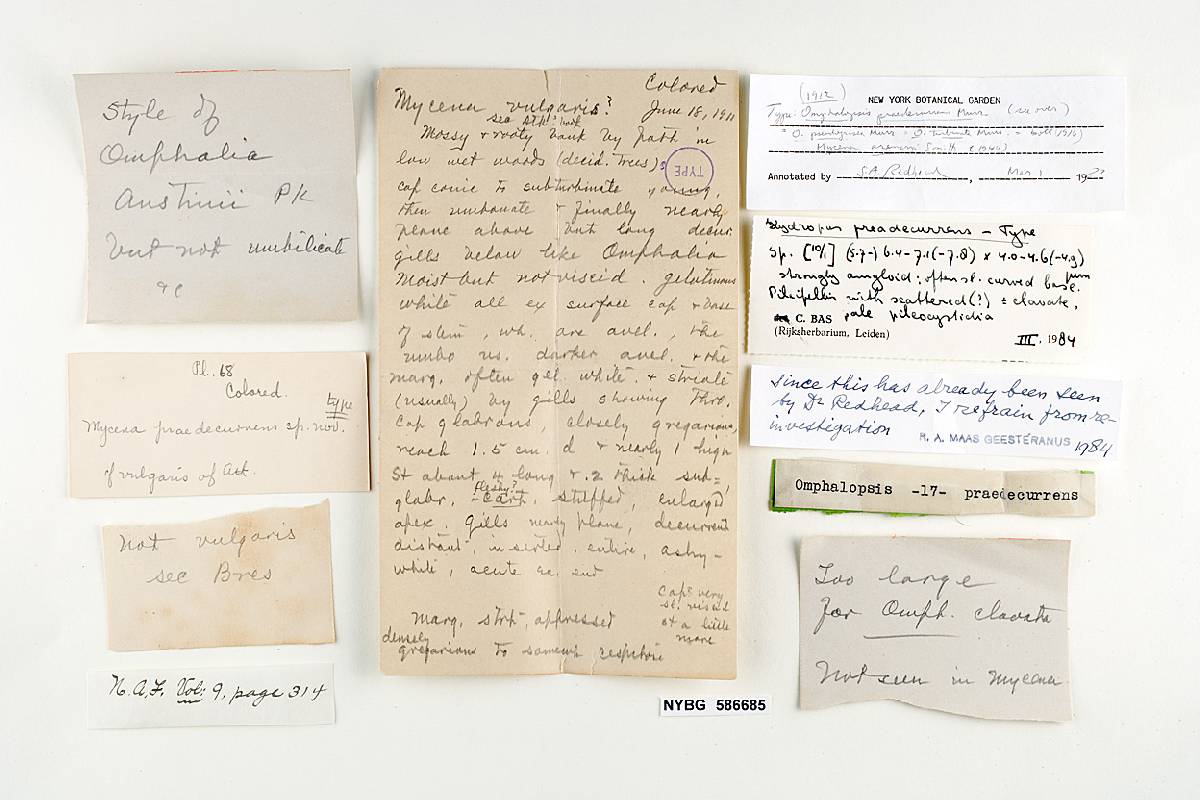 Style of
Omphalia
Austinii Pk
but not umbilicate
&c
Pl. 68
Colored.
type
Mycena praedecurrens sp. nov.
of vulgaris of Atk.
Not vulgaris
sec Bres
N.A.F. Vol: 9, page 314
Colored
Mycena vulgaris?
June 18, 1911
Mossy & rooty bank by path in
low wet woods (decid. trees)
TYPE
cap conic to subturbinate young,
then umbonate & finally nearly
plane above but long decur.
gills below like Omphalia
Moist but not viscid gelatinous
white all ex surface cap & base
of stem, wh. are avel., the
umbo us. darker avel. & the
marg. often gel. white. & striate
(usually) by gills showing thro.
Cap glabrous, closely gregarious,
reach 1.5 cm. d & nearly 1 high
St about 4 long & .2 thick sub=
fleshy?
glabr, -cart, stuffed, enlarged
apex. Gills nearly plane, decurrent
distant, inserted, entire, ashy-
white, acute
Caps very
sl. viscid
st a little
more
Marg. strt, appressed
densely
gregarious to somewh cespitose
NYBG 586685
(1912)
NEW YORK BOTANICAL GARDEN
Type: Omphalopsis praedecurrens Murr. (see over)
Annotated by S.A. Redhead, Mar 1 19
Hydropus praedecurrens - Type
Sp. [10/1] (5.7-) 6.4-7.1(-7.8) x 4.0-4.6(-4.9)
strongly amyloid; often sl. curved base.
Pileipellis with scattered (!) ± clavate,
pale pileocystidia
C. BAS
(Rijksherbarium, Leiden)
III. 1984
Since this has already been seen
by Dr Redhead, I refrain from re-
investigation
R. A. MAAS GEESTERANUS 1984
Omphalopsis -17- praedecurrens
Too large
for Omph. clavata
Not seen in Mycena